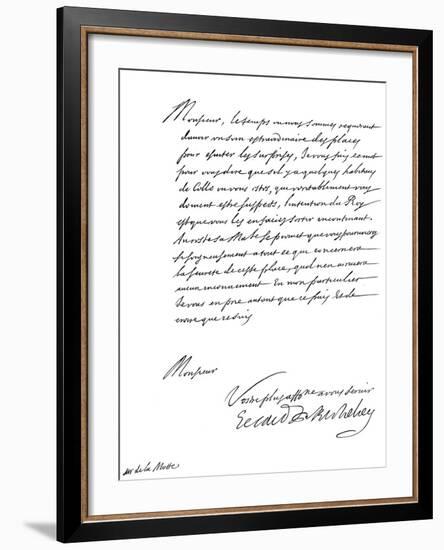 Monsieur, le temps ou nous sommes requerant
d'avoir un soin extraordinaire des places
pour esuiter les surprises, Je vous fais ce mot
pour vous dire que sil y a quelques habitans
de Celle ou vous estes, que veritablement vous
doiuent estre suspects, l'intention du Roy
est que vous les en faciez sortir incontinant.
Au reste sa Mate se promet que vous pouruoirez
sy soigneusement a tout ce que concernera
la seureté de ceste place, quil n'en arriuera
aucun inconuenient. En mon particulier
Je vous en prie autant que je puis et de
croire que je suis
Monsieur
Vostre plus affne a vous servir
Le Card de Richelieu
sr de la Motte